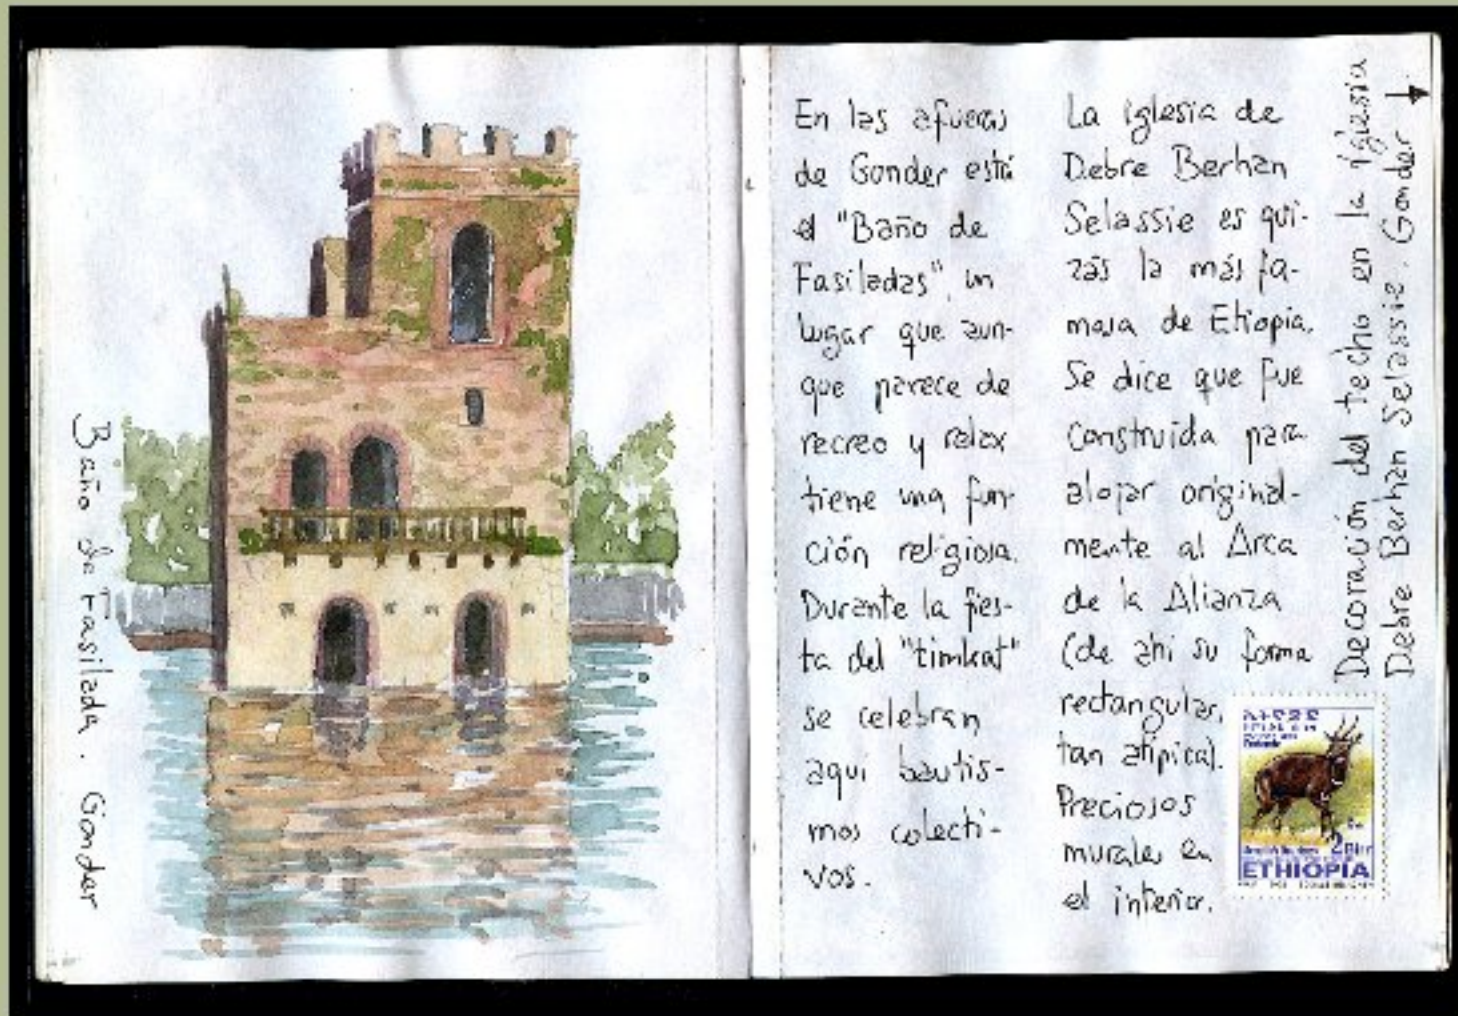 Baño de Fasilada. Gonder
En las afueras
de Gonder está
el "Baño de
Fasiladas", un
lugar que aun-
que parece de
recreo y relax
tiene una fun-
ción religiosa.
Durante la fies-
ta del "timkat"
se celebran
aquí bautis-
mos colecti-
vos.
La iglesia de
Debre Berhan
Selassie es qui-
zás la más fa-
mosa de Etiopia.
Se dice que fue
construida para
alojar original-
mente al Arca
de la Alianza
(de ahi su forma
rectangular,
tan atípica).
Preciosos
murales en
el interior.
Decoración del techo en la iglesia
Debre Berhan Selassie. Gonder
2 Birr
ETHIOPIA